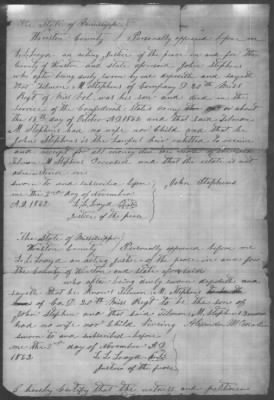 The State of Mississippi
Winston County } Personally appeared before me
L L Loyd an acting Justice of the peace in and for the
County of Winston and State aforesaid John Stephens
who after being duly sworn by me deposeth and sayeth
that Tilmon M Stephens of Company D 20th Miss
Regt of Miss Vol. was his son and died in the
service of the Confederate States army on or about
the 15th day of October A.D 1862 and that said Tilmon
M Stephens had no wife nor Child and that he
John Stephens is the lawful heir entitled to receive
and receipt for all
Tilmon M Stephens Deceased and that the estate is not
administered on
sworn to and subscribed before
me the 3rd day of November } John Stephens
A.D. 1862
L L Loyd
Justice of the peace
The State of Mississippi
Winston County } Personally appeared before me
L L Loyd an acting Justice of the peace in and for
the County of Winston and State aforesaid
who after being duly sworn deposeth and
sayeth that he knows Tilmon M Stephens
of Co. D 20th Miss Regt to be the son of
John Stephens and that said Tilmon M Stephens
had no wife nor Child living Alexander
sworn to and subscribed before
me the 3rd day of November A.D
1862 L L Loyd
Justice of the peace
I hereby certify that the witness and